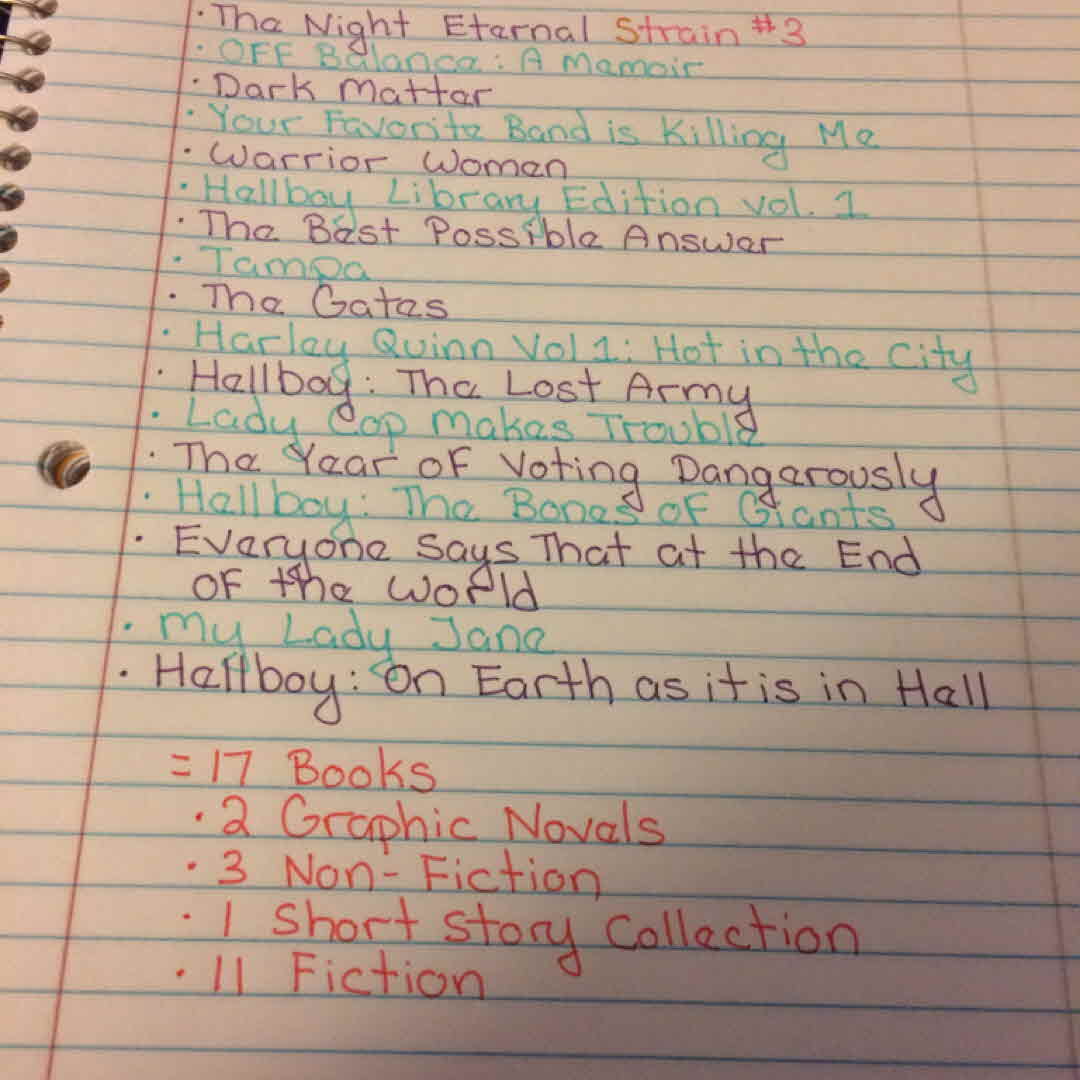 · The Night Eternal Strain #3
· Off Balance: A Memoir
· Dark Matter
· Your Favorite Band is Killing Me
· Warrior Women
· Hellboy Library Edition vol. 1
· The Best Possible Answer
· Tampa
· The Gates
· Harley Quinn Vol 1: Hot in the City
· Hellboy: The Lost Army
· Lady Cop Makes Trouble
· The Year of Voting Dangerously
· Hellboy: The Bones of Giants
· Everyone Says That at the End
of the World
· My Lady Jane
· Hellboy: On Earth as it is in Hell
= 17 Books
· 2 Graphic Novels
· 3 Non-Fiction
· 1 Short Story Collection
· 11 Fiction